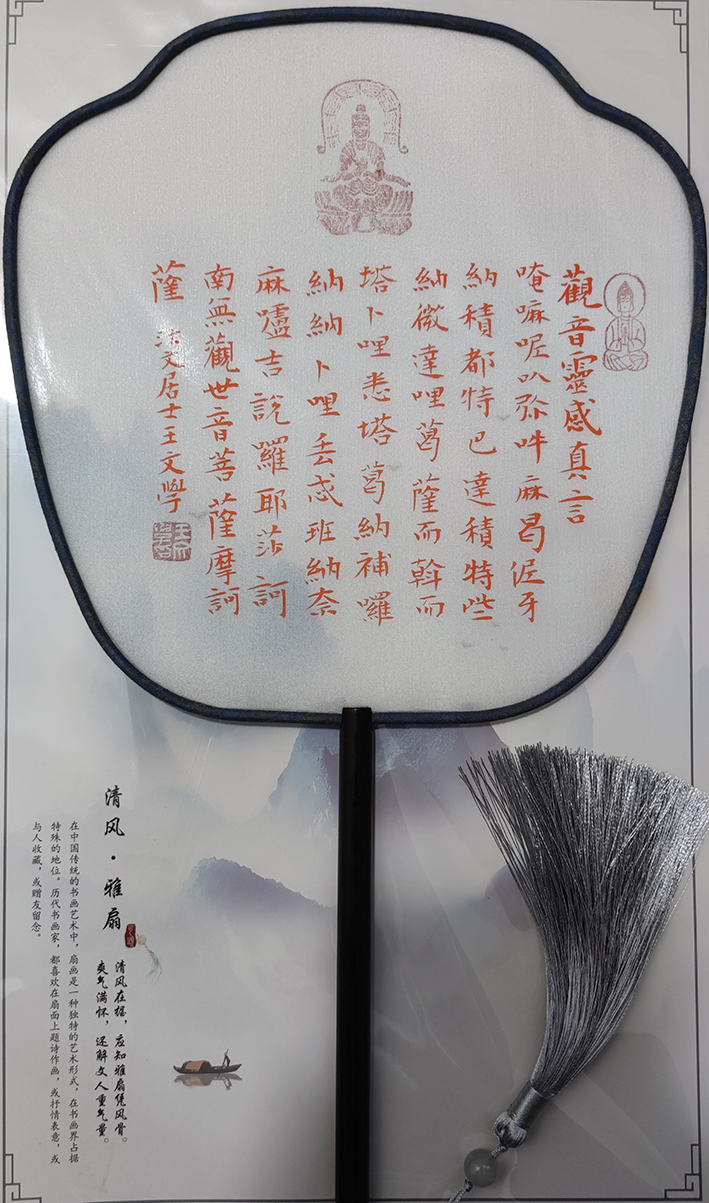 觀音靈感真言
唵嘛呢叭弥吽麻曷伲牙
納積都特巴達積特些
納微達哩葛薩而斡而
塔卜哩悉塔葛納補囉
納納卜哩丢忒班納奈
麻嚧吉說羅耶莎訶
南無觀世音菩薩摩訶
薩
文居士王文學
清风·雅扇
清风在握，应知雅扇凭风骨。
爽气满怀，还解文人重气量。
在中国传统的书画艺术中，扇画是一种独特的艺术形式，在书画界占据
特殊的地位。历代书画家，都喜欢在扇面上题诗作画，或抒情表意，或
与人收藏，或赠友留念。